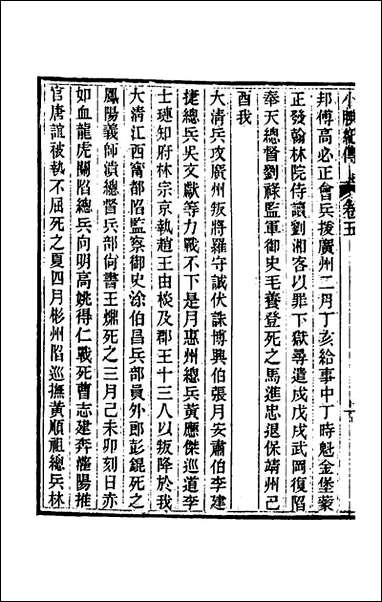 小腆紀傳 卷五
邦傅高必正會兵援廣州二月丁亥給事中丁時魁金堡蒙
正發翰林院侍讀劉湘客以罪下獄尋遣戍戊戌武岡復陷
奉天總督劉祿監軍御史毛養登死之馬進忠退保靖州己
酉我
大清兵攻廣州叛將羅守誠伏誅博興伯張月安肅伯李建
捷總兵吳文獻等力戰不下是月惠州總兵黃應傑巡道李
士璉知府林宗京執趙王由棪及郡王十三人以叛降於我
大清江西甯都陷監察御史涂伯昌兵部員外郎彭錕死之
鳳陽義師潰總督兵部尚書王爌死之三月己未卯刻日赤
如血龍虎關陷總兵向明高姚得仁戰死曹志建奔灌陽推
官唐誼被執不屈死之夏四月彬州陷巡撫黃順祖總兵林